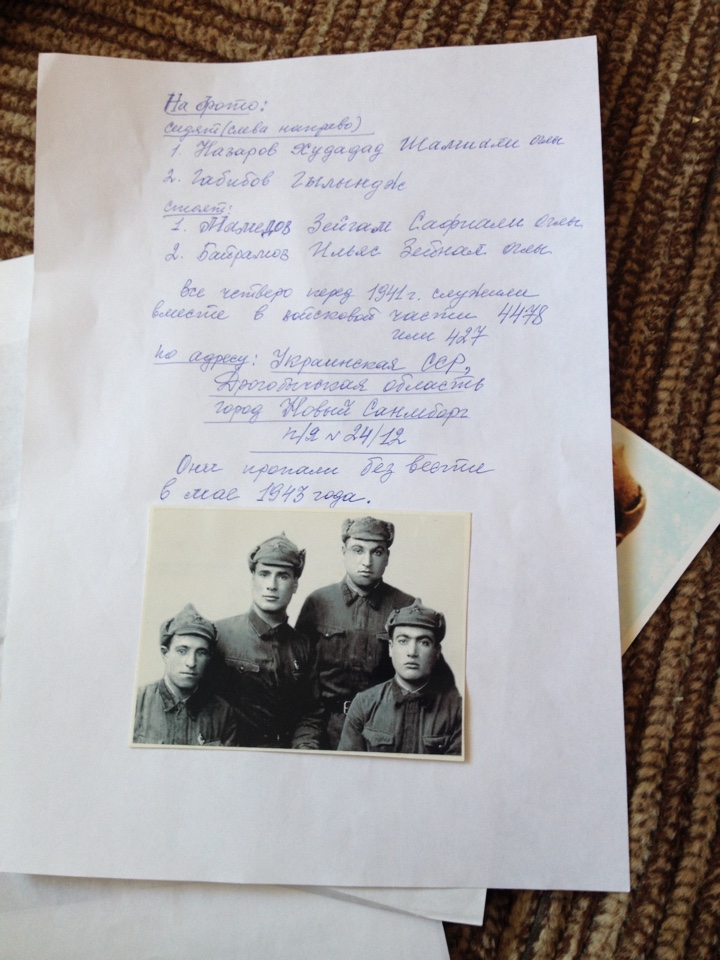 На фото:
сидят (слева направо)
1. Назаров Худадад Шамиали оглы
2. Габибов Гылындж
стоят:
1. Мамедов Зейгам Сафиали оглы
2. Байрамов Ильяс Зейнал оглы
Все четверо перед 1941 г. служили
вместе в войсковой части 4478
или 427
по адресу: Украинская ССР,
Дрогобычская область
город Новый Самборг
п/я № 24/12
Они пропали без вести
в мае 1943 года.